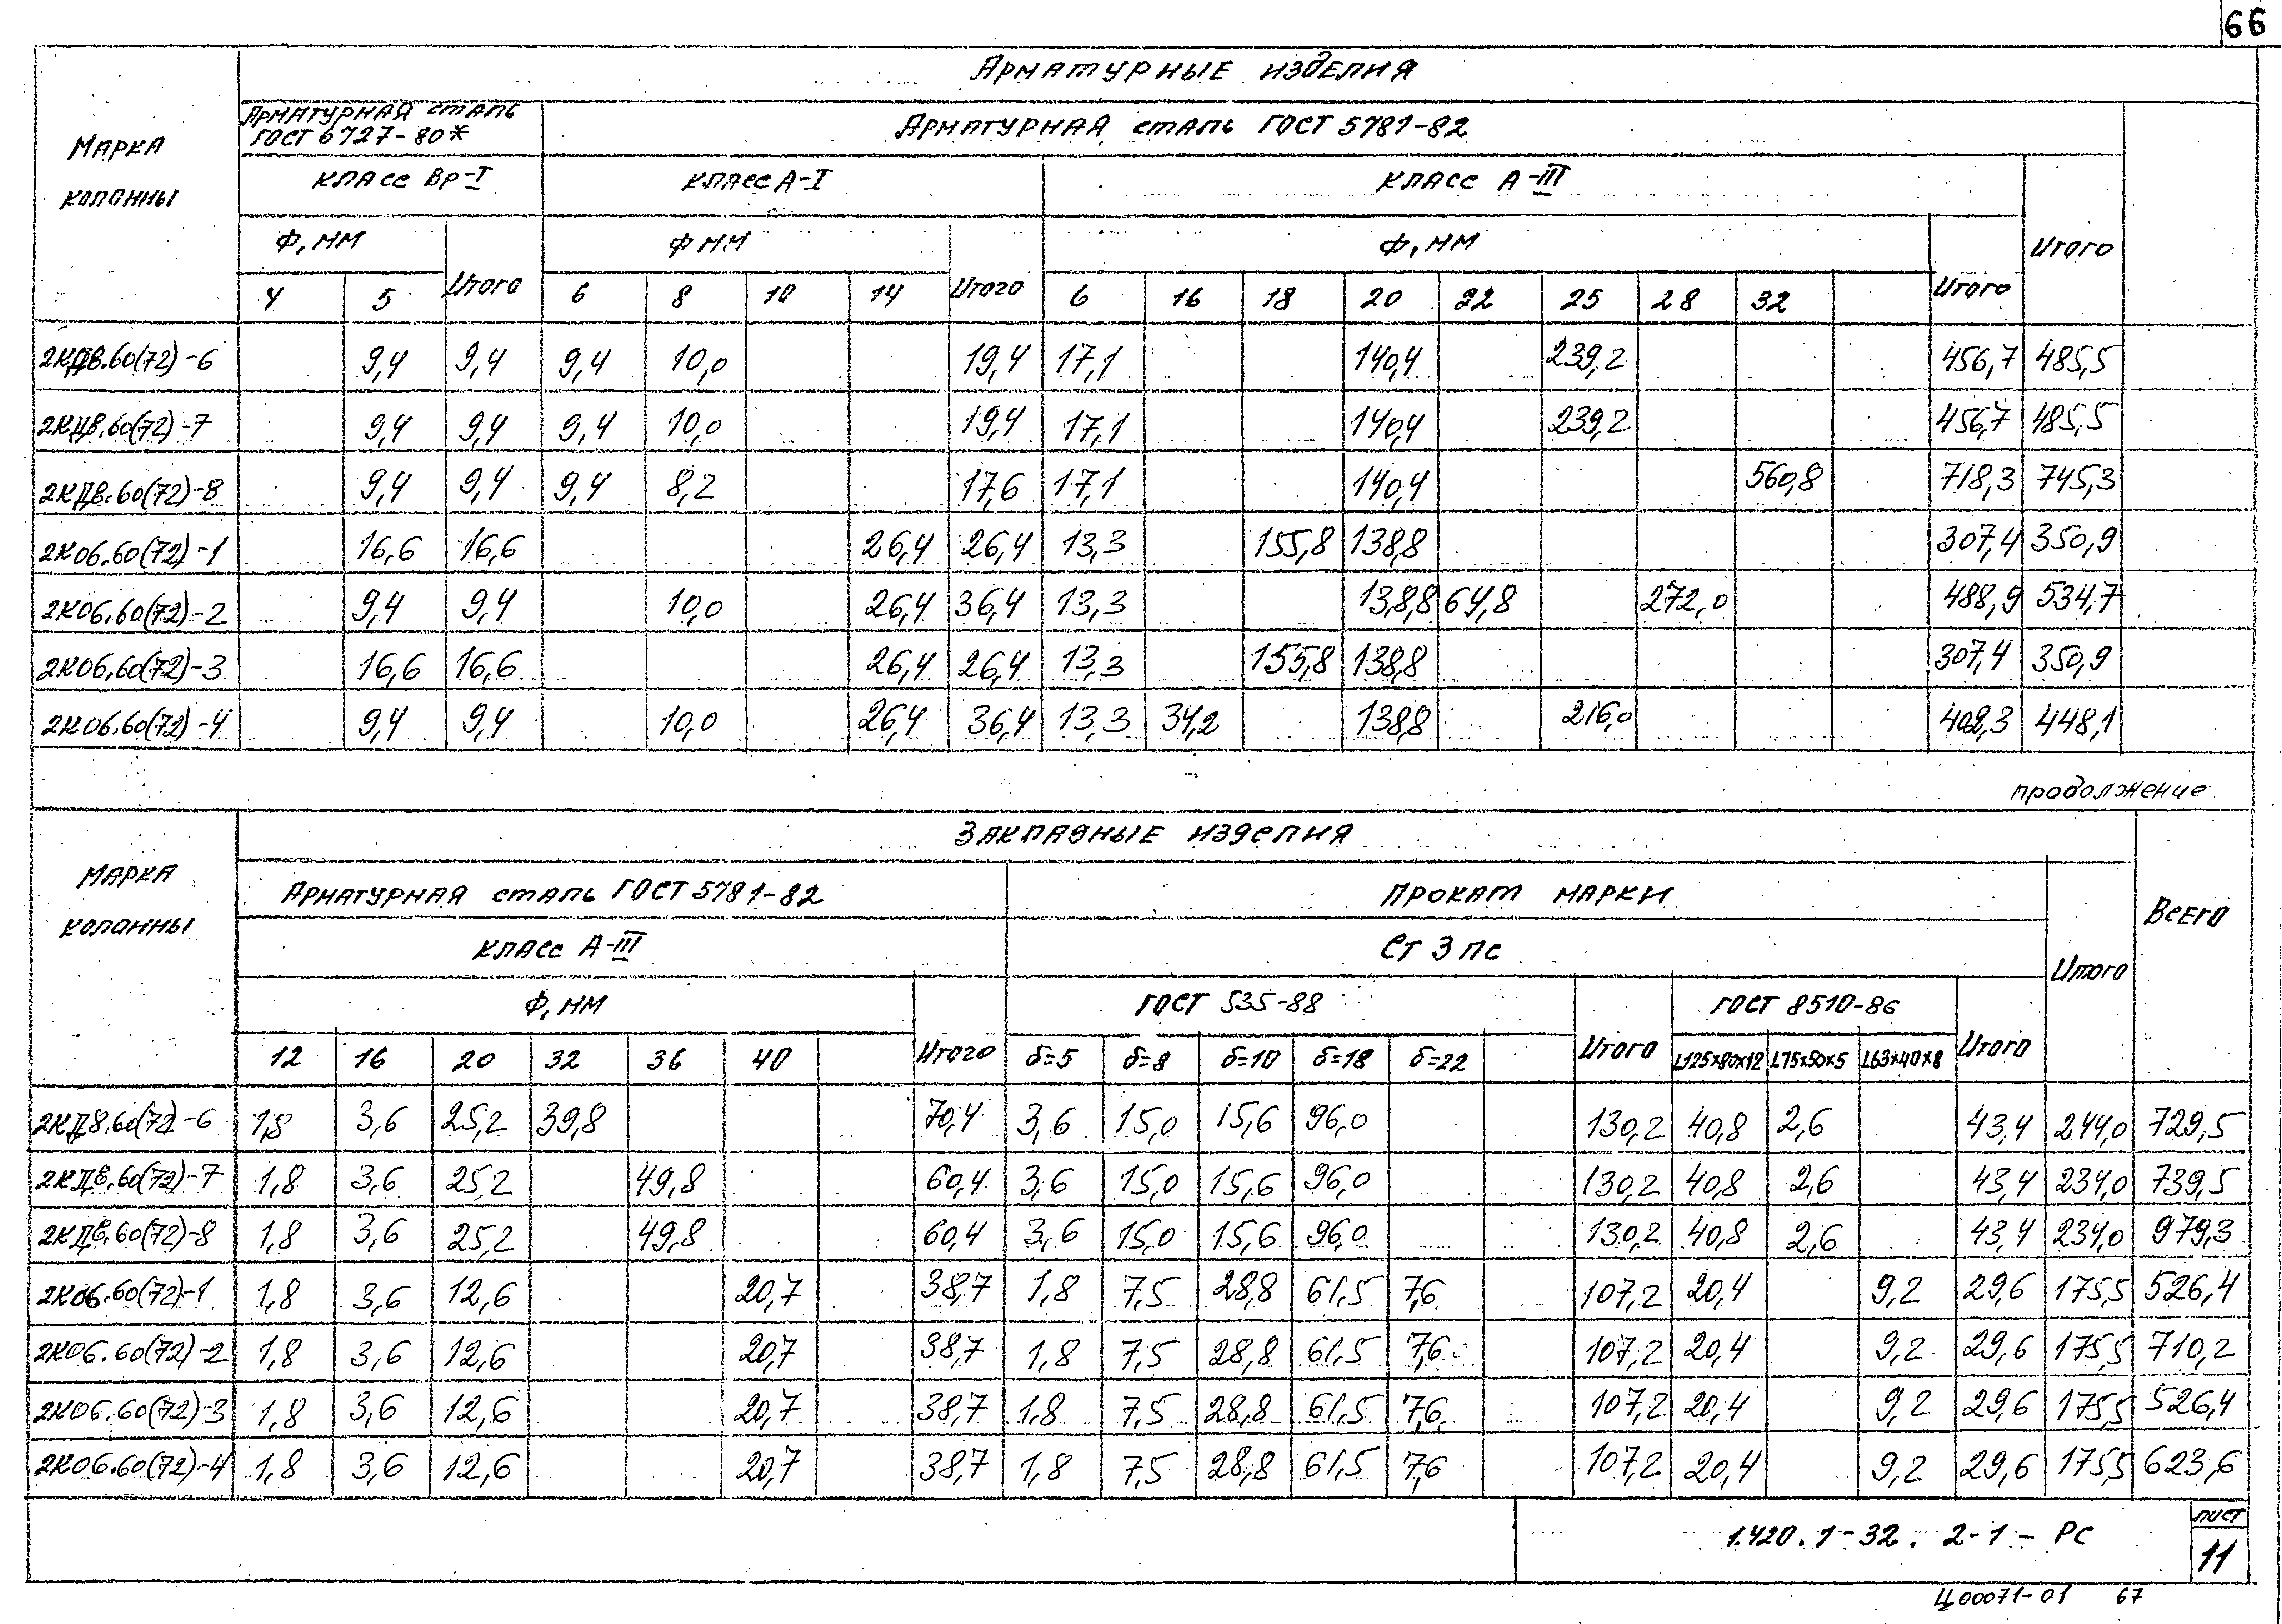 66
Арматурные изделия
Марка колонны
Арматурная сталь ГОСТ 6727-80*
Арматурная сталь ГОСТ 5781-82
Класс Вр-I
Класс А-I
Класс А-III
Ф, мм
Ф мм
Ф, мм
Итого
4 5 Итого 6 8 10 14 Итого 6 16 18 20 22 25 28 32 Итого
2КДв.60(72)-6 9,4 9,4 9,4 10,0 19,4 17,1 140,4 239,2 456,7 485,5
2КДв.60(72)-7 9,4 9,4 9,4 10,0 19,4 17,1 140,4 239,2 456,7 485,5
2КДв.60(72)-8 9,4 9,4 9,4 8,2 17,6 17,1 140,4 560,8 718,3 745,3
2К06.60(72)-1 16,6 16,6 26,4 26,4 13,3 155,8 138,8 307,4 350,9
2К06.60(72)-2 9,4 9,4 10,0 26,4 36,4 13,3 138,8 64,8 272,0 488,9 534,7
2К06.60(72)-3 16,6 16,6 26,4 26,4 13,3 155,8 138,8 307,4 350,9
2К06.60(72)-4 9,4 9,4 10,0 26,4 36,4 13,3 34,2 138,8 216,0 402,3 448,1
продолжение
Закладные изделия
Марка колонны
Арматурная сталь ГОСТ 5781-82
Прокат марки
Всего
Класс А-III
Ст 3 пс
Итого
Ф, мм
ГОСТ 535-88
ГОСТ 8510-86
12 16 20 32 36 40 Итого б=5 б=8 б=10 б=18 б=22 Итого L125x80x12 L75x50x5 L63x40x8 Итого
2КДв.60(72)-6 1,8 3,6 25,2 39,8 70,4 3,6 15,0 15,6 96,0 130,2 40,8 2,6 43,4 244,0 729,5
2КДв.60(72)-7 1,8 3,6 25,2 49,8 60,4 3,6 15,0 15,6 96,0 130,2 40,8 2,6 43,4 234,0 739,5
2КДв.60(72)-8 1,8 3,6 25,2 49,8 60,4 3,6 15,0 15,6 96,0 130,2 40,8 2,6 43,4 234,0 979,3
2К06.60(72)-1 1,8 3,6 12,6 20,7 38,7 1,8 7,5 28,8 61,5 7,6 107,2 20,4 9,2 29,6 175,5 526,4
2К06.60(72)-2 1,8 3,6 12,6 20,7 38,7 1,8 7,5 28,8 61,5 7,6 107,2 20,4 9,2 29,6 175,5 710,2
2К06.60(72)-3 1,8 3,6 12,6 20,7 38,7 1,8 7,5 28,8 61,5 7,6 107,2 20,4 9,2 29,6 175,5 526,4
2К06.60(72)-4 1,8 3,6 12,6 20,7 38,7 1,8 7,5 28,8 61,5 7,6 107,2 20,4 9,2 29,6 175,5 623,6
1.420.1-32. 2-1-РС
лист
11
Ц00071-01 67